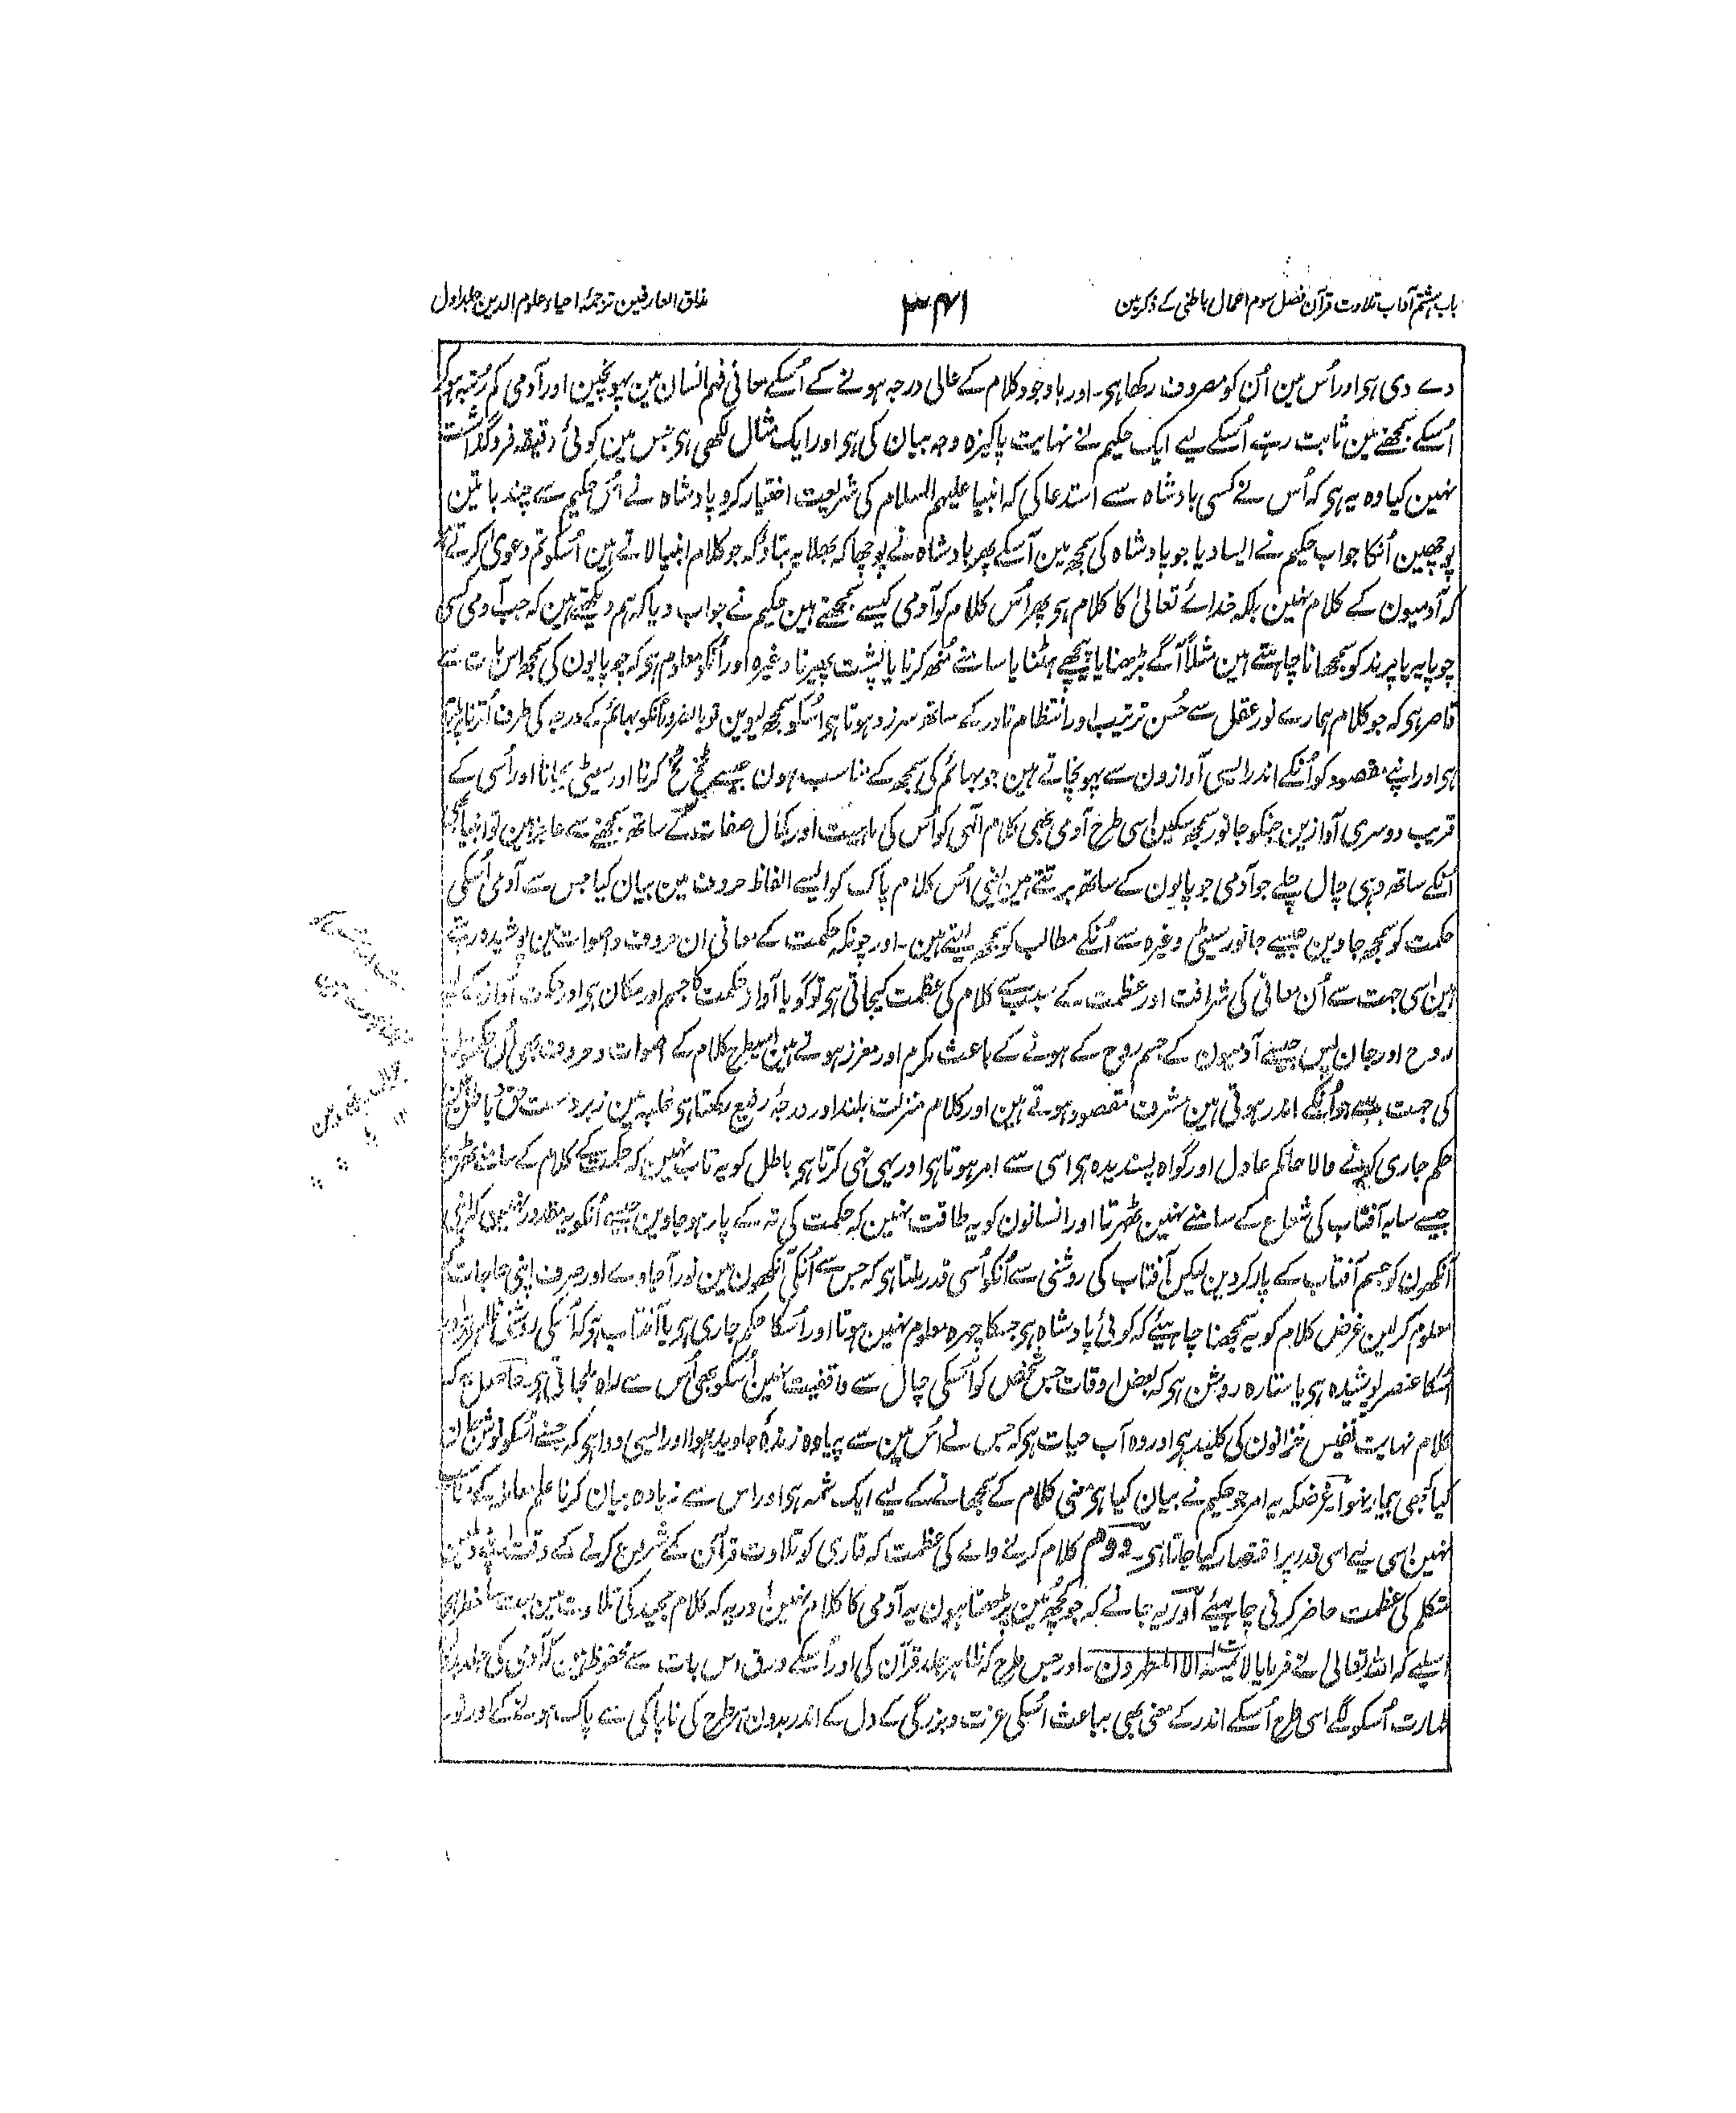 باب ہشتم آداب تلاوت قرآن فصل سوم اعمال باطنی کے ذکر مین
۳۴۱
مذاق العارفین ترجمۂ احیاء علوم الدین جلد اول
دے دی ہی اور اُس مین اُن کو مصروف رکھا ہی۔ اور باوجود کلام کے عالی درجہ ہونے کے اُسکے معانی فہم انسان مین پہونچین اور آدمی کم رتبہ ہوکر
اُسکے سمجھنے مین ثابت رہے اُسکے لیے ایک حکیم نے نہایت پاکیزہ وجہ بیان کی ہی اور ایک مثال لکھی ہی جس مین کوئی دقیقہ فروگذاشت
نہین کیا وہ یہ ہی کہ اُس نے کسی بادشاہ سے استدعا کی کہ انبیا علیہم السلام کی شریعت اختیار کرو پادشاہ نے اُس حکیم سے چند باتین
پوچھین اُنکا جواب حکیم نے ایسا دیا جو پادشاہ کی سمجھ مین آسکے پھر بادشاہ نے پوچھا کہ بھلا یہ بتاؤ کہ جو کلام انبیا لاتے ہین اُسکو تم دعویٰ کرتے ہو
کہ آدمیون کے کلام نہین بلکہ خدائے تعالیٰ کا کلام ہی پھر اُس کلام کو آدمی کیسے سمجھتے ہین حکیم نے جواب دیا کہ ہم دیکھتے ہین کہ جب آدمی کسی
چوپایہ یا پرند کو سمجھانا چاہتے ہین مثلاً آگے بڑھنا یا پیچھے ہٹنا یا سامنے مُنھ کرنا یا پشت پھیرنا وغیرہ اور اُنکو معلوم ہی کہ چوپایون کی سمجھ اس بات سے
قاصر ہی کہ جو کلام ہمارے نور عقل سے حُسن ترتیب اور انتظام نادر کے ساتھ سرزد ہوتا ہی اُسکو سمجھ لیوین تو بالضرور اُنکو بہائم کے درجہ کی طرف اُترنا پڑتا
ہی اور اپنے مقصود کو اُنکے اندر ایسی آوازون سے پہونچاتے ہین جو بہائم کی سمجھ کے مناسب ہون جیسے ٹخ ٹخ کرنا اور سیٹی بجانا اور اُسی کے
قریب دوسری آوازین جنکو جانور سمجھ سکین اسی طرح آدمی بھی کلام الٰہی کو اُس کی ماہیت اور کمال صفات کے ساتھ سمجھنے سے عاجز ہین تو انبیا بھی
اُنکے ساتھ وہی چال چلے جو آدمی چوپایون کے ساتھ برتتے ہین یعنی اُس کلام پاک کو ایسے الفاظ حروف مین بیان کیا جس سے آدمی اُسکی
حکمت کو سمجھ جاوین جیسے جانور سیٹی وغیرہ سے اُنکے مطالب کو سمجھ لیتے ہین۔ اور چونکہ حکمت کے معانی ان حروف و اصوات مین پوشیدہ رہتے
ہین اسی جہت سے اُن معانی کی شرافت اور عظمت کے سبب سے کلام کی عظمت کیجاتی ہی تو گویا آواز حکمت کا جسم اور مکان ہی اور حکمت آواز کے لیے
روح اور جان پس جیسے آدمیون کے جسم روح کے ہونے کے باعث مکرم اور معزز ہوتے ہین اسیطرح کلام کے اصوات و حروف بھی اُن حکمتون
کی جہت سے جو اُنکے اندر ہوتی ہین مشرف مقصود ہوتے ہین اور کلام منزلت بلند اور درجۂ رفیع رکھتا ہی غلبہ مین زبردست حق و باطل مین
حکم جاری کرنے والا حاکم عادل اور گواہ پسندیدہ ہی اسی سے امر ہوتا ہی اور یہی نہی کرتا ہی باطل کو یہ تاب نہین کہ حکمت کے کلام کے سامنے ٹھہرے
جیسے سایہ آفتاب کی شعاع کے سامنے نہین ٹھہرتا اور انسانون کو یہ طاقت نہین کہ حکمت کی تہ کے پار ہو جاوین جیسے اُنکو یہ مقدور نہین کہ اپنی
آنکھون کو جسم آفتاب کے پار کردین لیکن آفتاب کی روشنی سے اُنکو اُسی قدر ملتا ہی کہ جس سے اُنکی آنکھون مین نور آجاوے اور صرف اپنی حاجات کو
معلوم کرلین غرض کلام کو یہ سمجھنا چاہیئے کہ کوئی پادشاہ ہی جسکا چہرہ معلوم نہین ہوتا اور اُسکا حکم جاری ہی یا آفتاب ہو کہ اُسکی روشنی ظاہر اور
اُسکا عنصر پوشیدہ ہی یا ستارہ روشن ہی کہ بعض اوقات جس شخص کو اُسکی چال سے واقفیت نہین اُسکو بھی اُس سے راہ ملجاتی ہی۔ حاصل یہ کہ
کلام نہایت نفیس خزانون کی کلید ہی اور وہ آب حیات ہی کہ جس نے اُس مین سے پیا وہ زندۂ جاوید ہوا اور ایسی دوا ہی کہ جسنے اُسکو نوش جان
کیا کبھی بیمار نہوا غرضکہ یہ امر جو حکیم نے بیان کیا ہی معنی کلام کے سمجھانے کے لیے ایک شمہ ہی اور اس سے زیادہ بیان کرنا علم معاملہ کو مناسب
نہین اسی لیے اسی قدر پر اختصار کیا جاتا ہی۔ دوم کلام کرنے والے کی عظمت کہ قاری کو تلاوت قرآن کے شروع کرنے کے وقت اپنے دل مین
متکلم کی عظمت حاضر کرنی چاہیئے اور یہ جانے کہ جو کچھ مین پڑھتا ہون یہ آدمی کا کلام نہین اور یہ کہ کلام مجید کی تلاوت مین بہت سا خطر ہی
اسلیے کہ اللہ تعالیٰ نے فرمایا لا یمسہ الا المطہرون۔ اور جس طرح کہ ظاہر جلد قرآن کی اور اُسکے ورق اس بات سے محفوظ ہین کہ آدمی کی جلد بدون
طہارت اُسکو لگے اسی طرح اُسکے اندر کے معنی بھی بباعث اُسکی عزت و بزرگی کے دل کے اندر بدون ہر طرح کی ناپاکی سے پاک ہونے کے اور نور